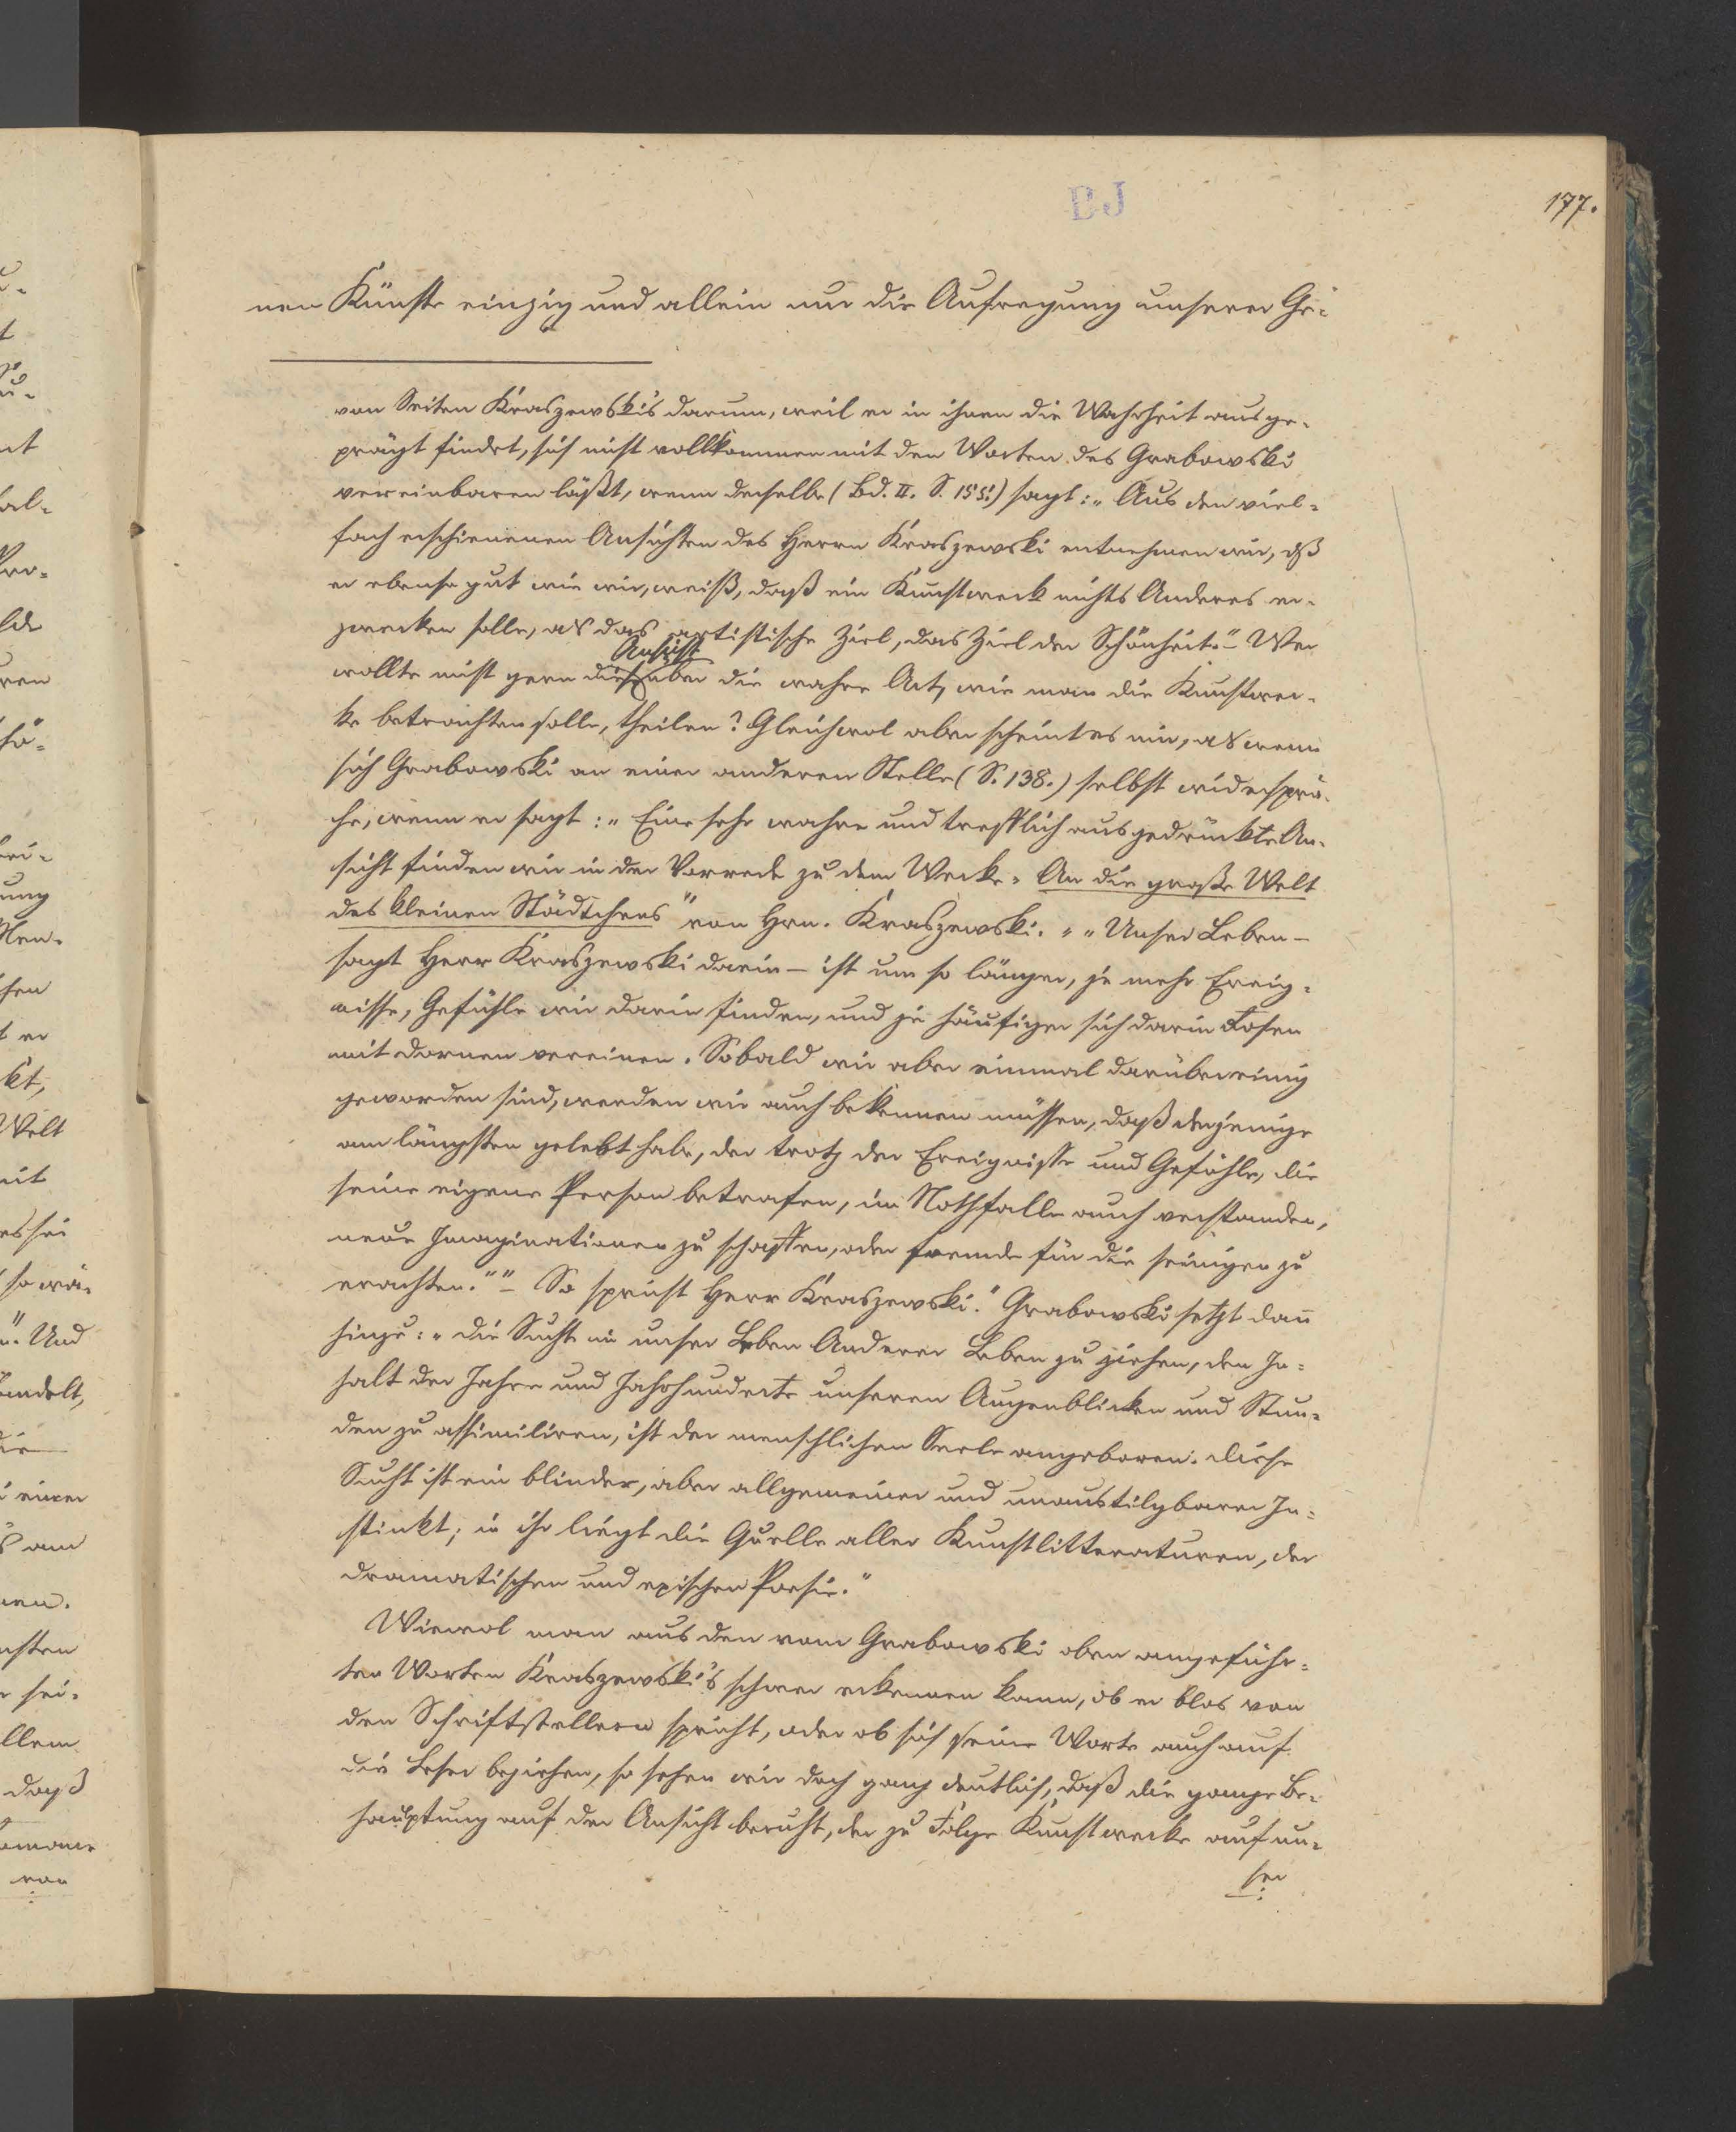 BJ
177.
nen Künste einzig und allein nur die Aufregung unserer Ge-
von Seiten Kraszewski's darum, weil er in ihnen die Wahrheit ausge-
prägt findet, sich nicht vollkommen mit den Worten des Grabowski
vereinbaren läßt, wenn derselbe (Bd. II. S. 155.) sagt: „Aus den viel-
fach erschienenen Ansichten des Herrn Kraszewski entnehmen wir, dß
er ebenso gut wie wir, weiß, daß ein Kunstwerk nichts Anderes er-
zwecken solle, als das artistische Ziel, das Ziel der Schönheit." – Wer
Ansicht
wollte nicht gern diese über die wahre Art, wie man die Kunstwer-
ke betrachten solle, theilen? Gleichwol aber scheint es mir, als wenn
sich Grabowski an einer anderen Stelle (S. 138.) selbst widersprä-
che, wenn er sagt: „Eine sehr wahre und trefflich ausgedrückte An-
sicht finden wir in der Vorrede zu dem Werke „An die große Welt
des kleinen Städtchens" von Hrn. Kraszewski. „„Unser Leben –
sagt Herr Kraszewski darin – ist um so länger, je mehr Ereig-
nisse, Gefühle wir darin finden, und je häufiger sich darin Rosen
mit Dornen vereinen. Sobald wir aber einmal darüber einig
geworden sind, werden wir auch bekennen müssen, daß derjenige
am längsten gelebt habe, der trotz der Ereignisse und Gefühle, die
seine eigene Person betrafen, im Nothfalle auch verstanden,
neue Imaginationen zu schaffen, oder fremde für die seinigen zu
erachten."" – So spricht Herr Kraszewski." Grabowski setzt dann̄
hinzu: „Die Sucht in unser Leben Anderer Leben zu ziehen, den In-
halt der Jahre und Jahrhunderte unseren Augenblicken und Stun-
den zu assimiliren, ist der menschlichen Seele angeboren. Diese
Sucht ist ein blinder, aber allgemeiner und unaustilgbarer In-
stinkt; in ihr liegt die Quelle aller Kunstlitteraturen, der
dramatischen und epischen Poesie."
Wiewol man aus den vom Grabowski oben angeführ-
ten Worten Kraszewski's schwer erkennen kann, ob er blos von
den Schriftstellern spricht, oder ob sich seine Worte auch auf
die Leser beziehen, so sehen wir doch ganz deutlich, daß die ganze Be-
hauptung auf der Ansicht beruht, der zu Folge Kunstwerke auf un-
ser